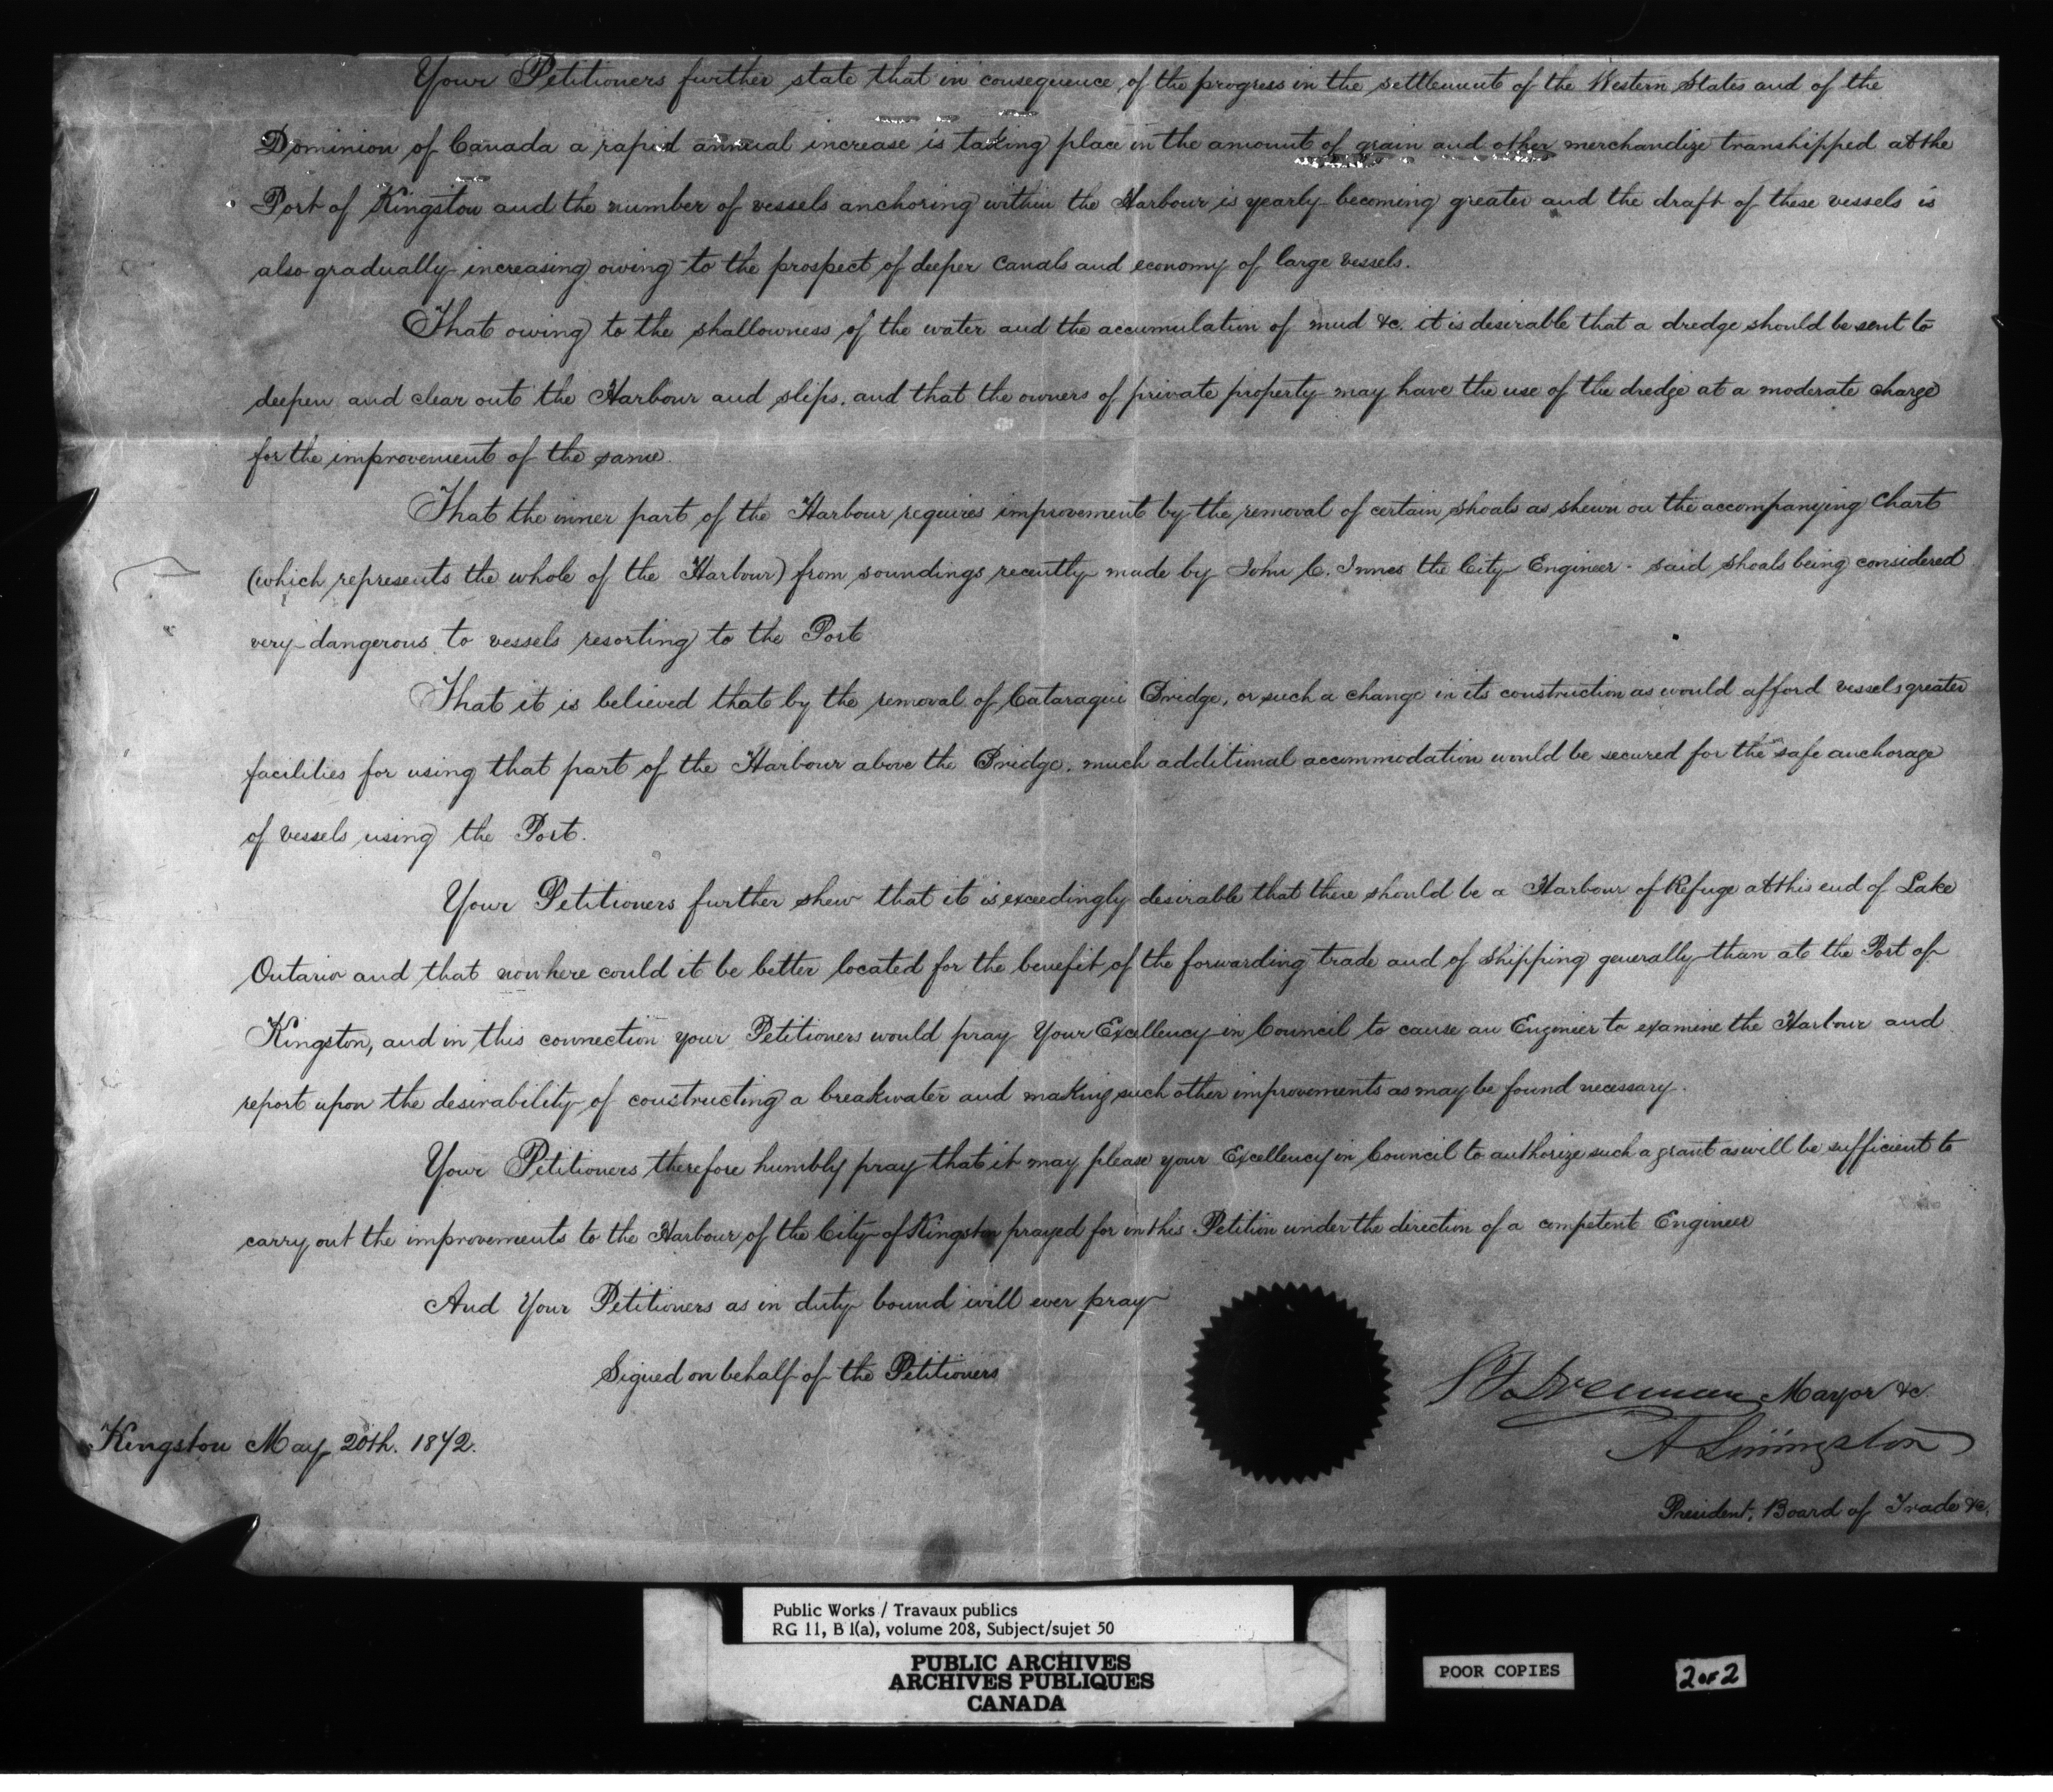 Your Petitioners further state that in consequence of the progress in the settlement of the Western States and of the
Dominion of Canada a rapid annual increase is taking place in the amount of grain and other merchandize transhipped at the
Port of Kingston and the number of vessels anchoring within the Harbour is yearly becoming greater and the draft of these vessels is
also gradually increasing owing to the prospect of deeper canals and economy of large vessels.
That owing to the shallowness of the water and the accumulation of mud &c. it is desirable that a dredge should be sent to
deepen and clear out the Harbour and slips, and that the owners of private property may have the use of the dredge at a moderate charge
for the improvement of the same.
That the inner part of the Harbour requires improvement by the removal of certain shoals as shewn on the accompanying Chart
(which represents the whole of the Harbour) from soundings recently made by John C. Innes the City Engineer - said shoals being considered
very dangerous to vessels resorting to the Port
That it is believed that by the removal of Cataraqui Bridge, or such a change in its construction as would afford vessels greater
facilities for using that part of the Harbour above the Bridge, much additional accommodation would be secured for the safe anchorage
of vessels using the Port.
Your Petitioners further shew that it is exceedingly desirable that there should be a Harbour of Refuge at this end of Lake
Ontario and that nowhere could it be better located for the benefit of the forwarding trade and of shipping generally than at the Port of
Kingston, and in this connection your Petitioners would pray Your Excellency in Council to cause an Engineer to examine the Harbour and
report upon the desirability of constructing a breakwater and making such other improvements as may be found necessary.
Your Petitioners therefore humbly pray that it may please your Excellency in Council to authorize such a grant as will be sufficient to
carry out the improvements to the Harbour of the City of Kingston prayed for in this Petition under the direction of a competent Engineer
And Your Petitioners as in duty bound will ever pray
Signed on behalf of the Petitioners
Mayor &c.
Kingston May 20th. 1872.
A Livingston
President, Board of Trade &c.
Public Works / Travaux publics
RG 11, B 1(a), volume 208, Subject/sujet 50
PUBLIC ARCHIVES
ARCHIVES PUBLIQUES
CANADA
POOR COPIES
2 OF 2